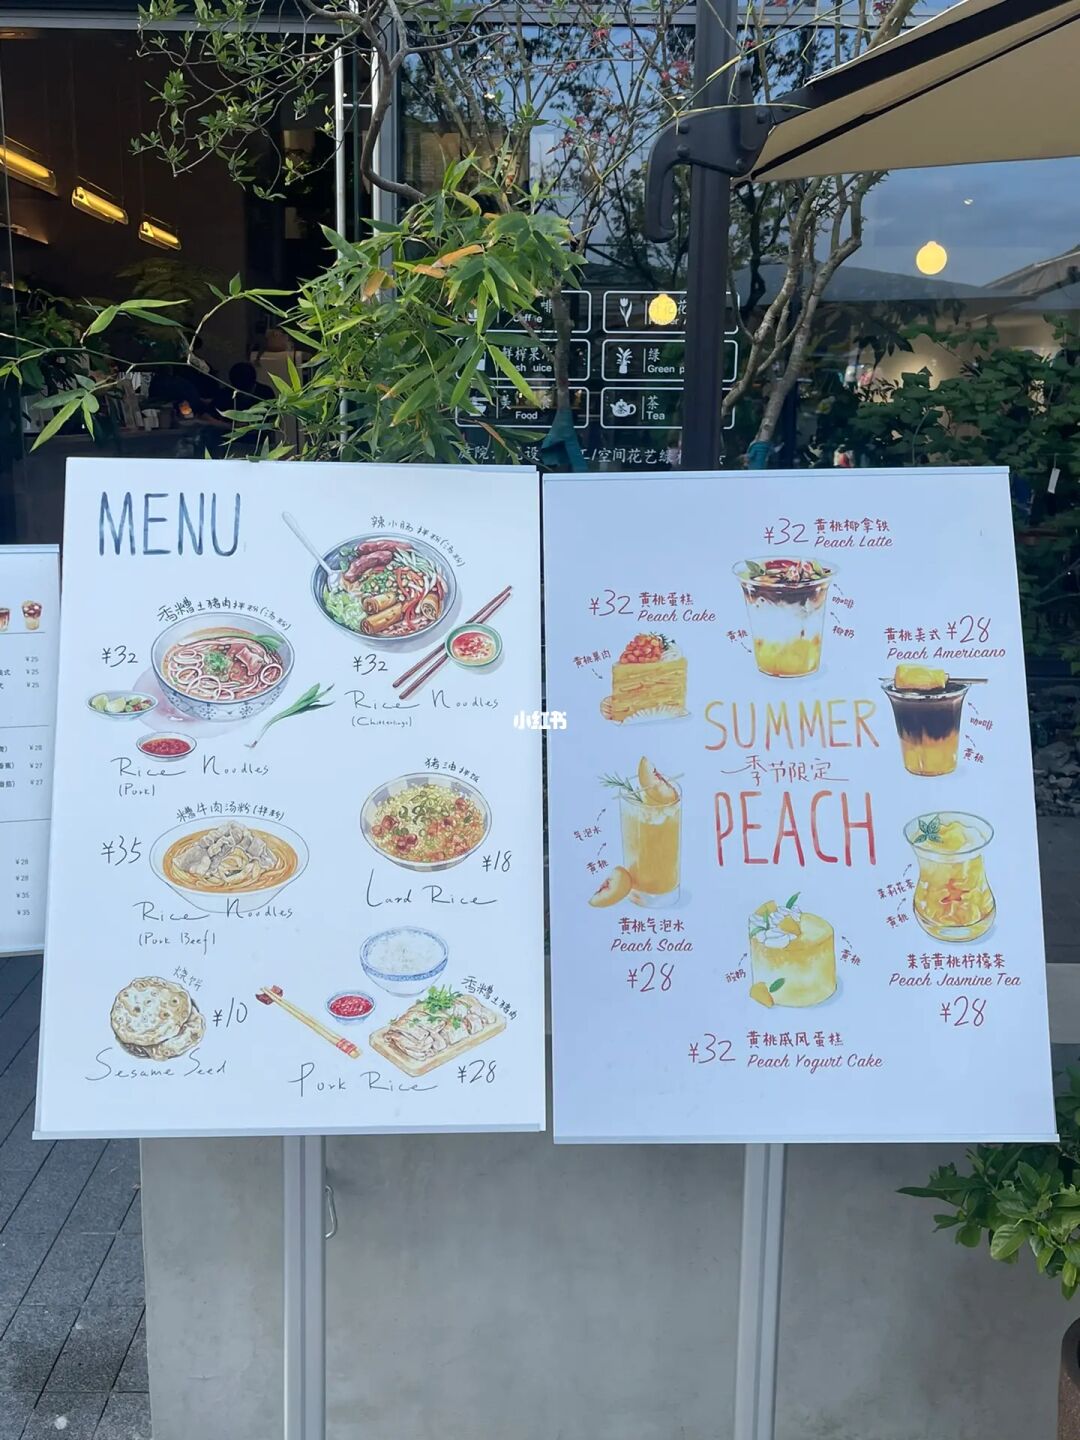 Coffee
鲜榨果
绿
Green p
美
Food
茶
Tea
MENU
辣小肠拌粉(汤粉)
¥32
Rice Noodles
(Chitterlings)
香糟土猪肉拌粉(汤粉)
¥32
Rice Noodles
(Pork)
糟牛肉汤粉(拌粉)
¥35
Rice Noodles
(Pork Beef)
猪油拌饭
¥18
Lard Rice
烧饼
¥10
Sesame Seed
香糟土猪肉
Pork Rice
¥28
小红书
¥32
黄桃椰拿铁
Peach Latte
咖啡
椰奶
黄桃
¥32
黄桃蛋糕
Peach Cake
黄桃果肉
黄桃美式
¥28
Peach Americano
咖啡
黄桃
SUMMER
季节限定
PEACH
气泡水
黄桃
黄桃气泡水
Peach Soda
¥28
茉莉花茶
黄桃
茉香黄桃柠檬茶
Peach Jasmine Tea
¥28
酸奶
黄桃
¥32
黄桃戚风蛋糕
Peach Yogurt Cake
¥25
¥25
¥25
¥28
¥27
¥27
¥28
¥28
¥35
¥35